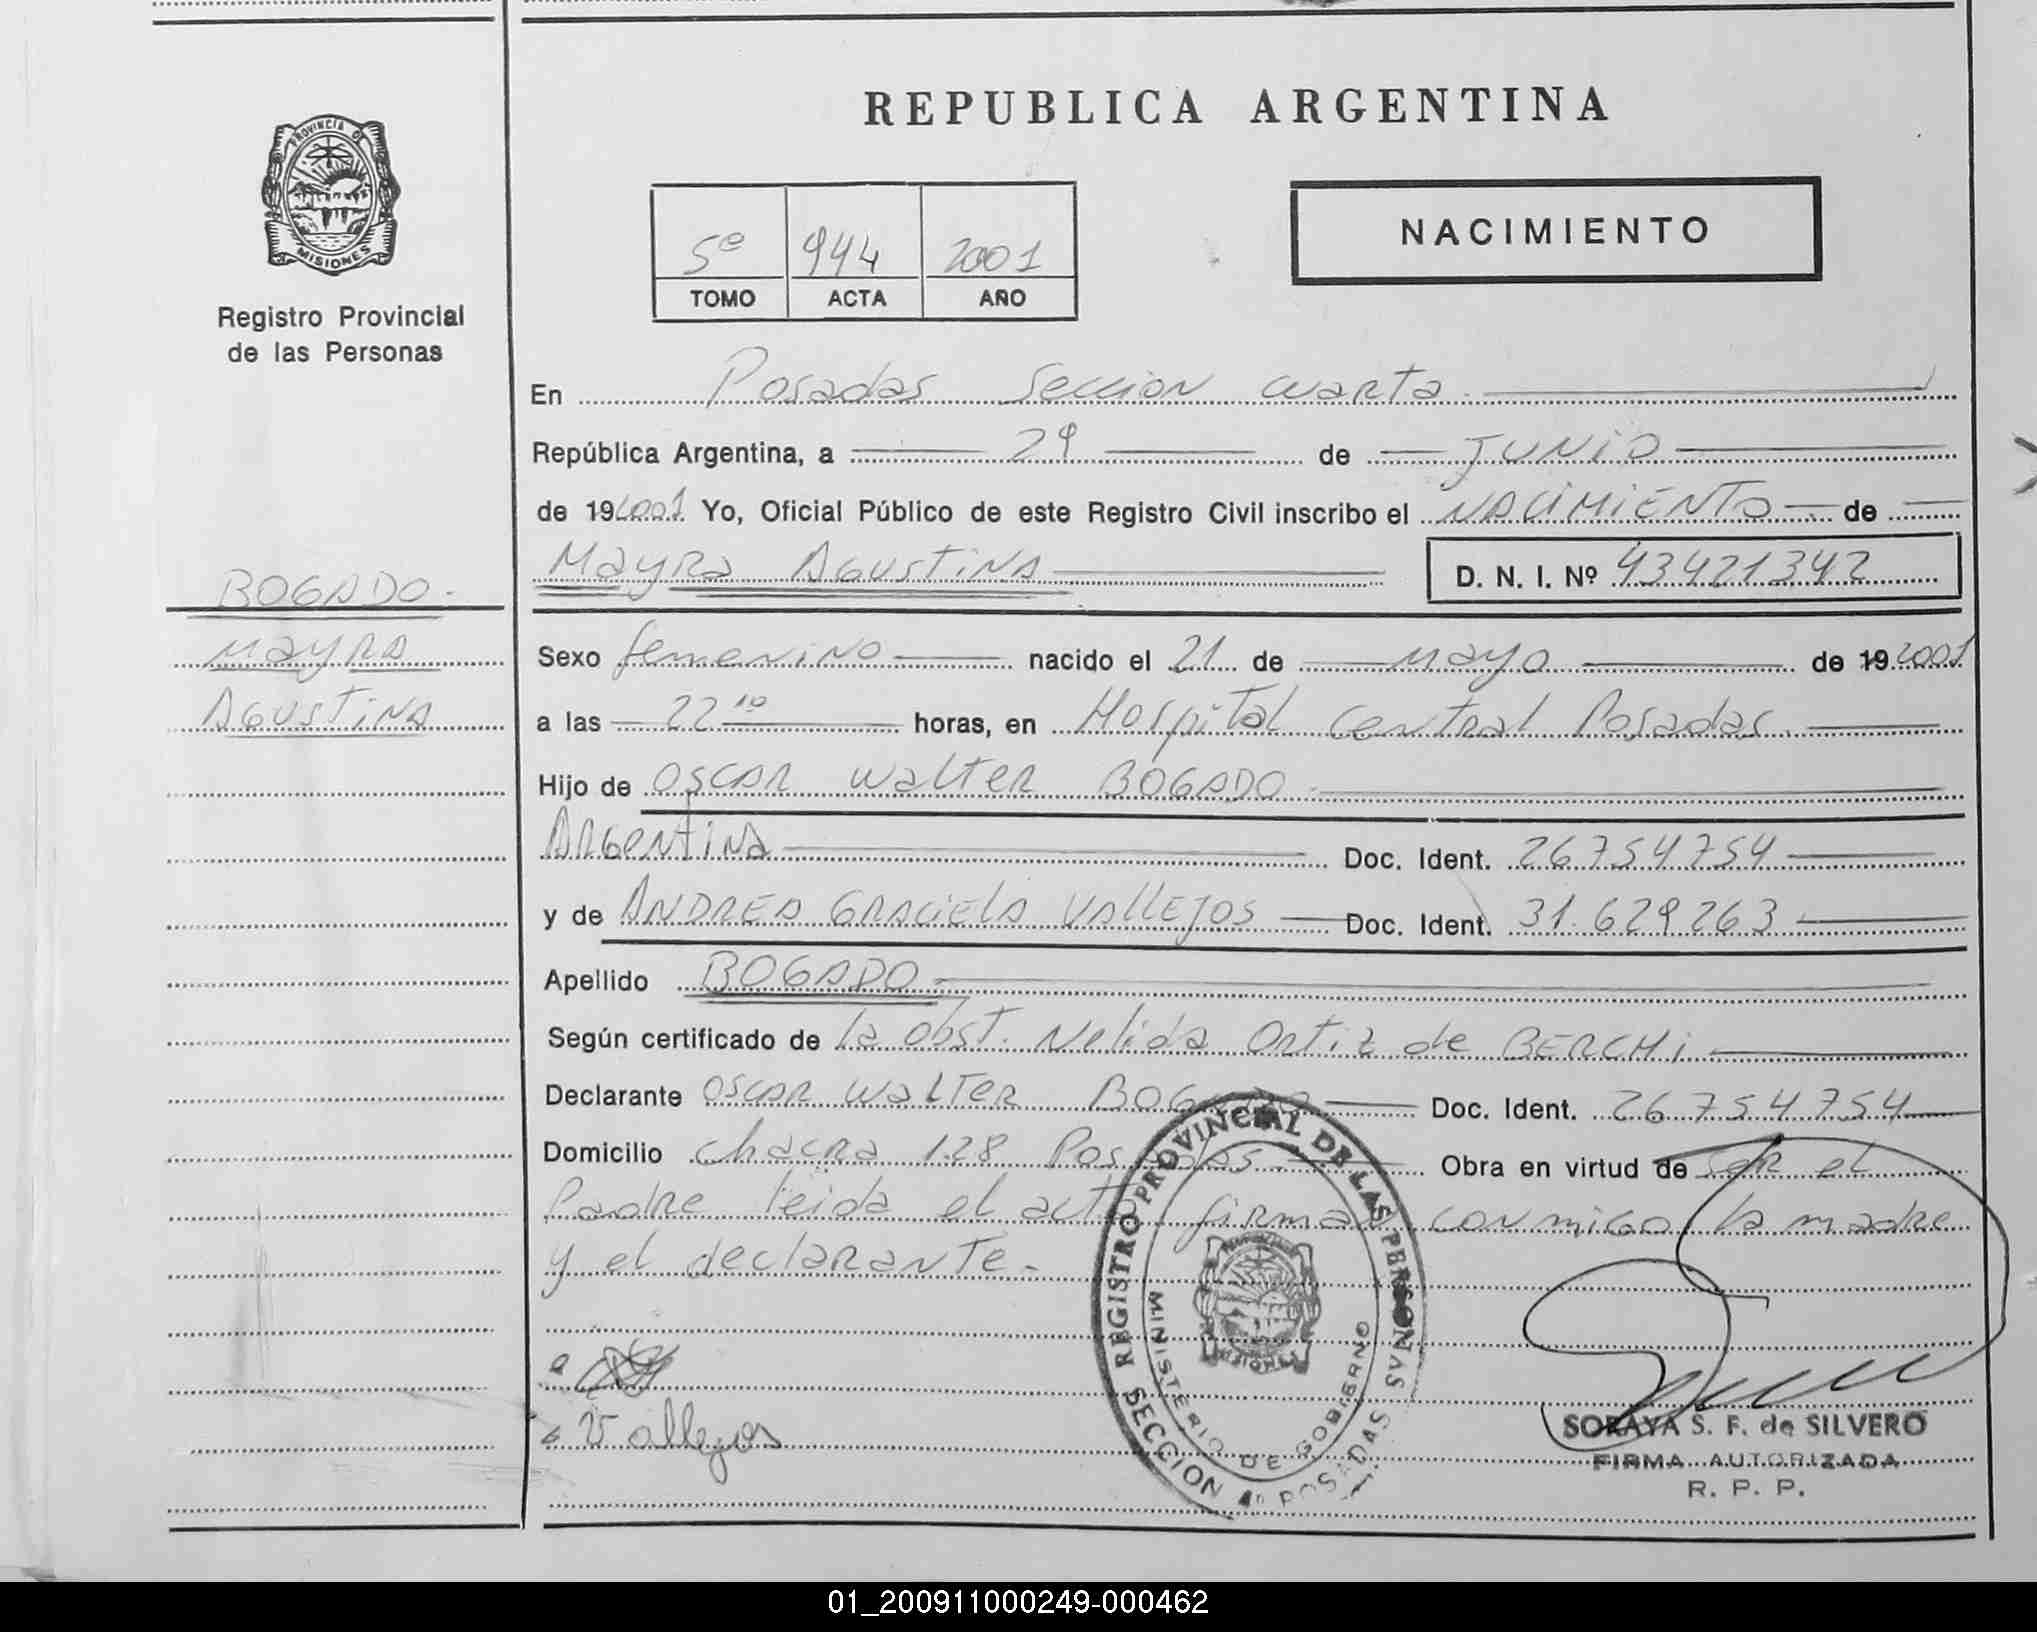 REPUBLICA ARGENTINA
PROVINCIA DE
MISIONES
Registro Provincial
de las Personas
NACIMIENTO
5º 944 2001
TOMO ACTA AÑO
En Posadas Seccion cuarta
República Argentina, a 29 de JUNIO
de 192001 Yo, Oficial Público de este Registro Civil inscribo el NACIMIENTO de
Mayra Agustina D. N. I. Nº 43421342
BOGADO.
Mayra
Agustina
Sexo femenino nacido el 21 de mayo de 19 2001
a las 22 10 horas, en Hospital Central Posadas
Hijo de Oscar Walter BOGADO
Argentina Doc. Ident. 26754754
y de ANDREA GRACIELA VALLEJOS Doc. Ident. 31.629263
Apellido BOGADO
Según certificado de la obst. Nelida Ortiz de BERCHI
Declarante Oscar Walter BOGADO Doc. Ident. 26754754
Domicilio chacra 128 Posadas Obra en virtud de ser el
Padre leida el acta firman conmigo la madre
y el declarante.-
Vallejos
REGISTRO PROVINCIAL DE LAS PERSONAS
MINISTERIO DE GOBIERNO
SECCION 4º POSADAS
SORAYA S. F. de SILVERO
FIRMA AUTORIZADA
R. P. P.
01_200911000249-000462